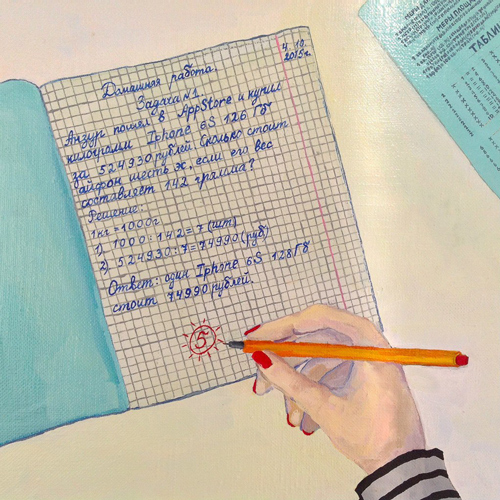 4.10.
2015г.
Домашняя работа.
Задача №1.
Анзур пошел в AppStore и купил
килограмм Iphone 6S 126 Гб
за 524930 рублей. Сколько стоит
айфон шесть ЭС, если его вес
составляет 142 грамма?
Решение:
1 кг = 1000г
1) 1000 : 142 = 7 (шт)
2) 524930 : 7 = 74990 (руб)
Ответ: один Iphone 6S 128 Гб
стоит 74990 рублей.
5
МЕРЫ ПЛОЩА
ТАБЛИ